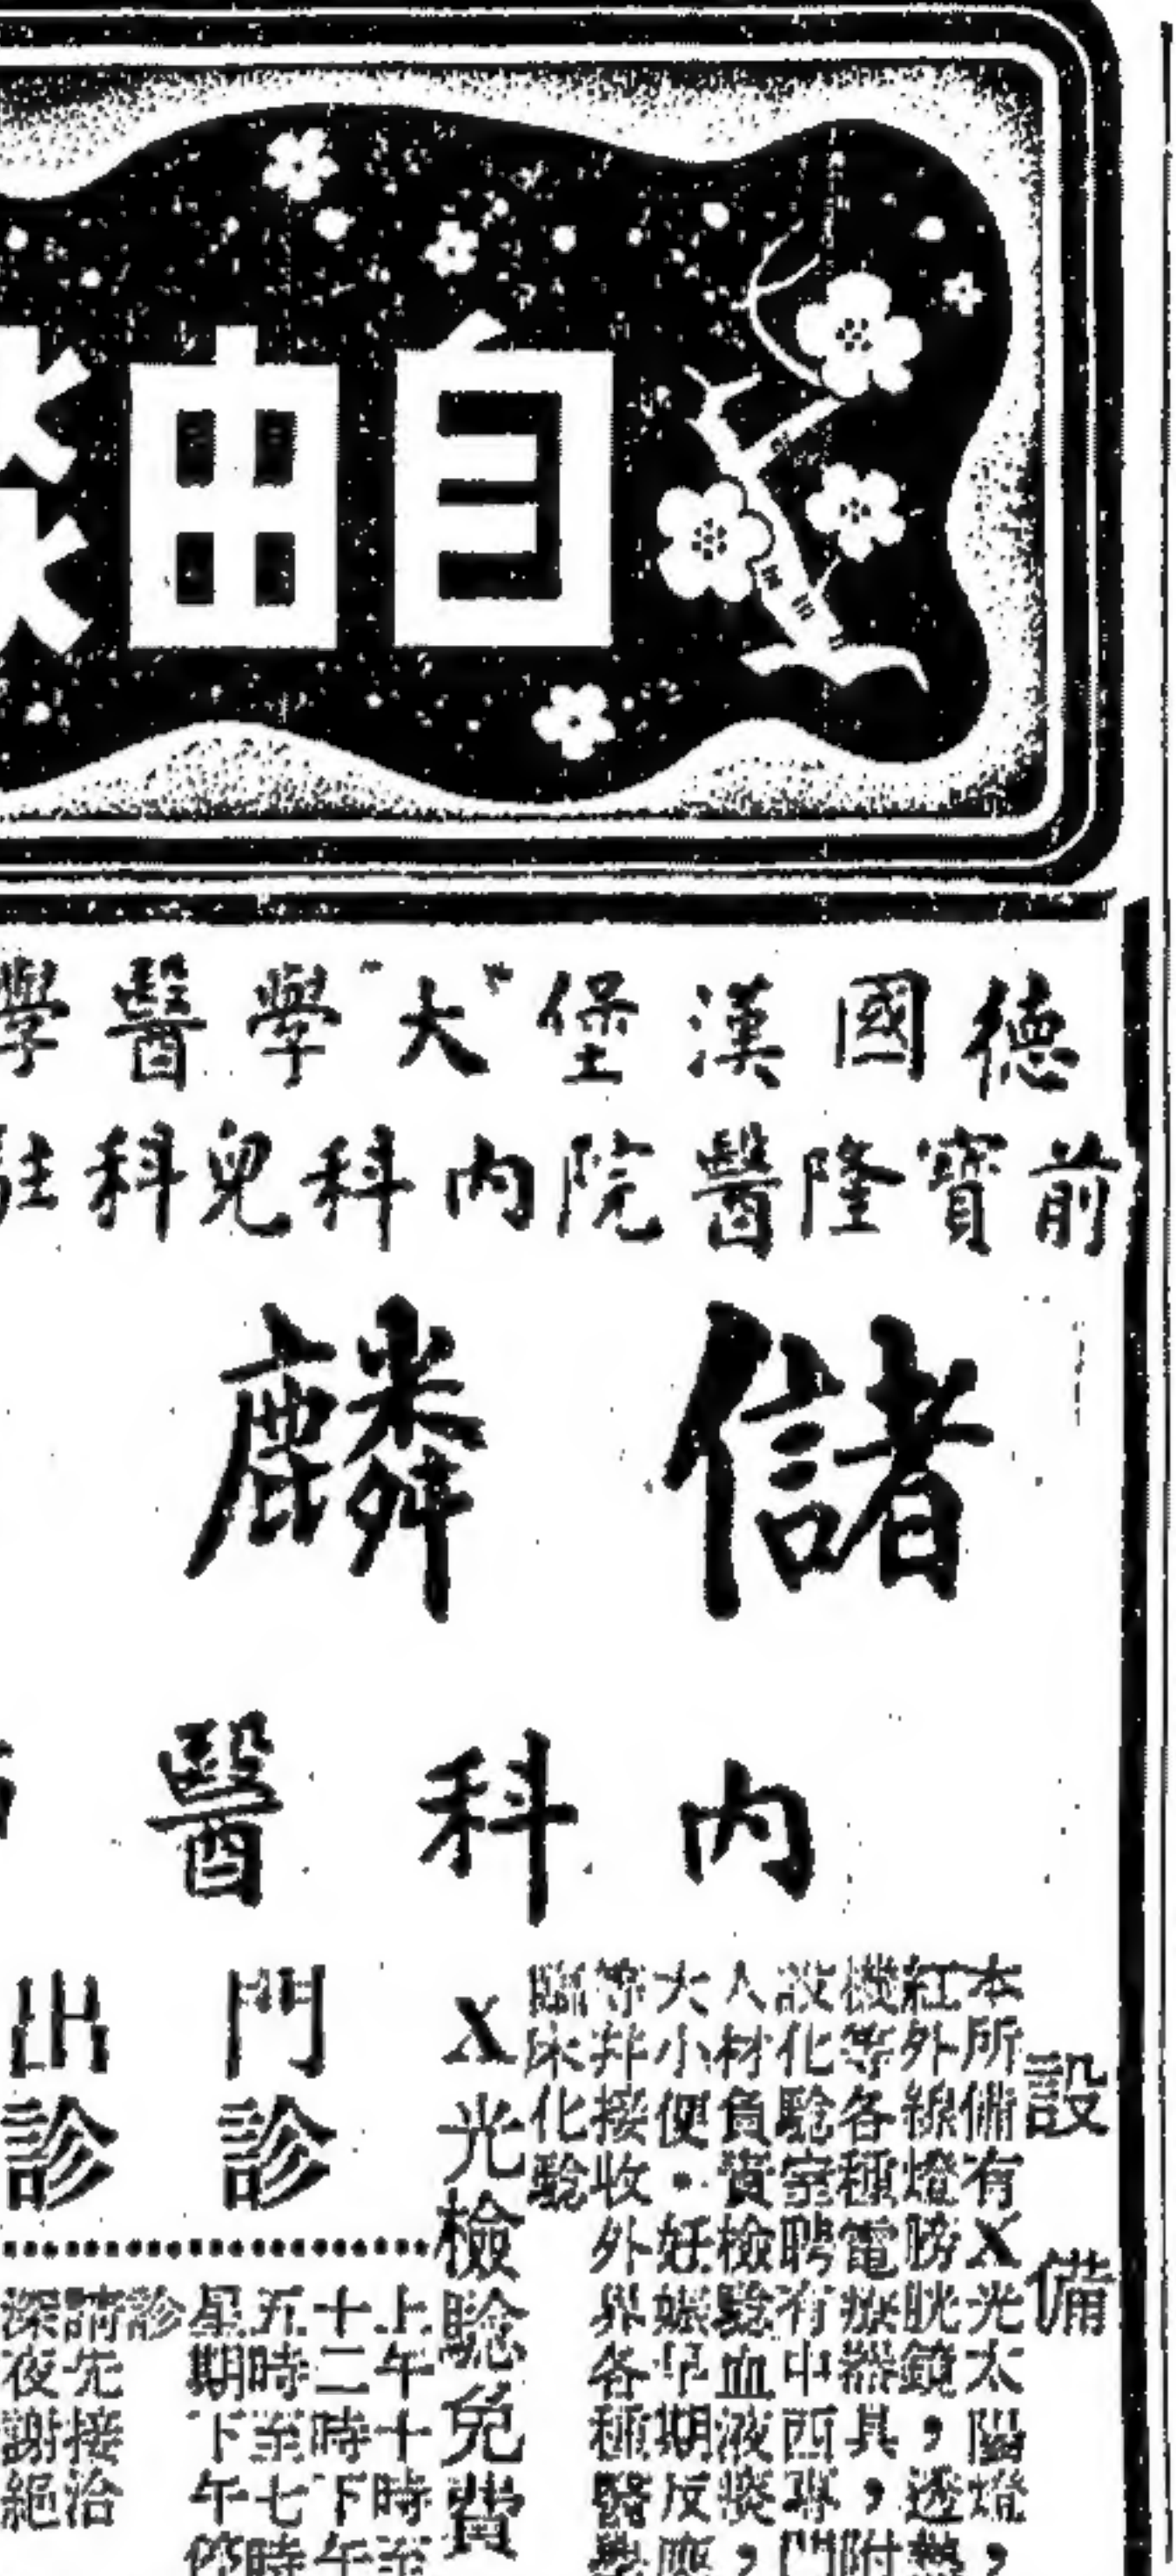 自由談
德國漢堡"大"學醫學
前寶隆醫院內科兒科駐
儲麟
內科醫師
設備
本所備有X光太陽燈，
紅外線燈膀胱鏡，透熱
機等各種電療器具，附
設化驗室聘有中西專門
人材負責檢驗血液痰，
大小便·妊娠早期反應
等并接收外界各種醫學
臨床化驗
X光檢驗免費
門診
上午十時至
十二時下午
五時至七時
星期下午停
出診
診
請先接洽
深夜謝絕